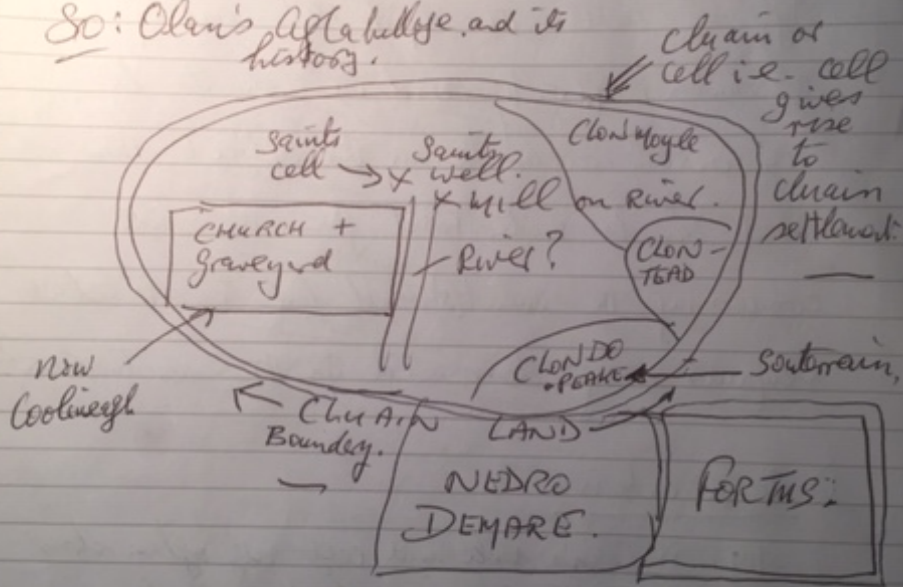 So: Olan's Aghabulloge and its
history.
Cluain or
cell i.e. cell
gives
rise
to
cluain
settlement:
Saints
cell
Saints
well.
Clonmoyle
Mill on River.
CHURCH +
graveyard
River?
CLON-
TEAD
CLONDO
PEAKE
Souterrain,
Now
Coolineagh
CLUAIN
Boundary.
LAND
NEDRO
DEMARE.
FORTUS: